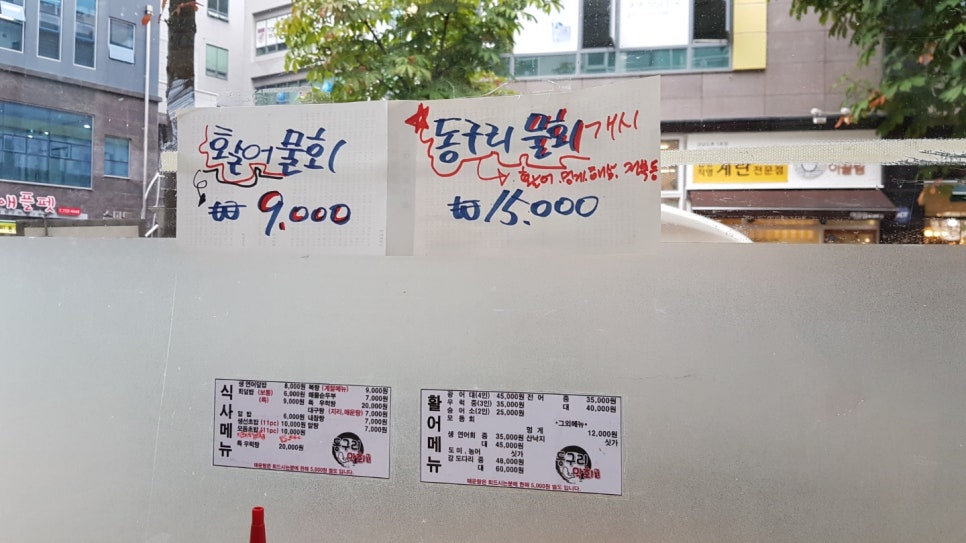 활어 물회
₩ 9.000
동구리 물회 개시
활어.멍게.해삼.전복 등
₩ 15.000
애플펫
계란 전문점
식사메뉴
생 연어덮밥 8,000원
회덮밥 (보통) 6,000원
(특) 9,000원
알 밥 6,000원
생선초밥 (11pc) 10,000원
모듬초밥 (11pc) 10,000원
특 우럭탕 20,000원
복탕 (계절메뉴) 9,000원
해물순두부 7,000원
특 우럭탕 20,000원
대구탕 (지리,매운탕) 7,000원
내장탕 7,000원
알탕 7,000원
동구리
막회
매운탕은 회드시는분에 한해 5,000원 별도 입니다.
활어메뉴
광 어 대(4인) 45,000원
우 럭 중(3인) 35,000원
숭 어 소(2인) 25,000원
모 듬 회
생 연어회 중 35,000원
대 45,000원
도 미 . 농어 싯가
강 도다리 중 48,000원
대 60,000원
전 어 중 35,000원
대 40,000원
·그외메뉴·
멍 게 12,000원
산낙지 싯가
동구리
막회
매운탕은 회드시는분에 한해 5,000원 별도 입니다.